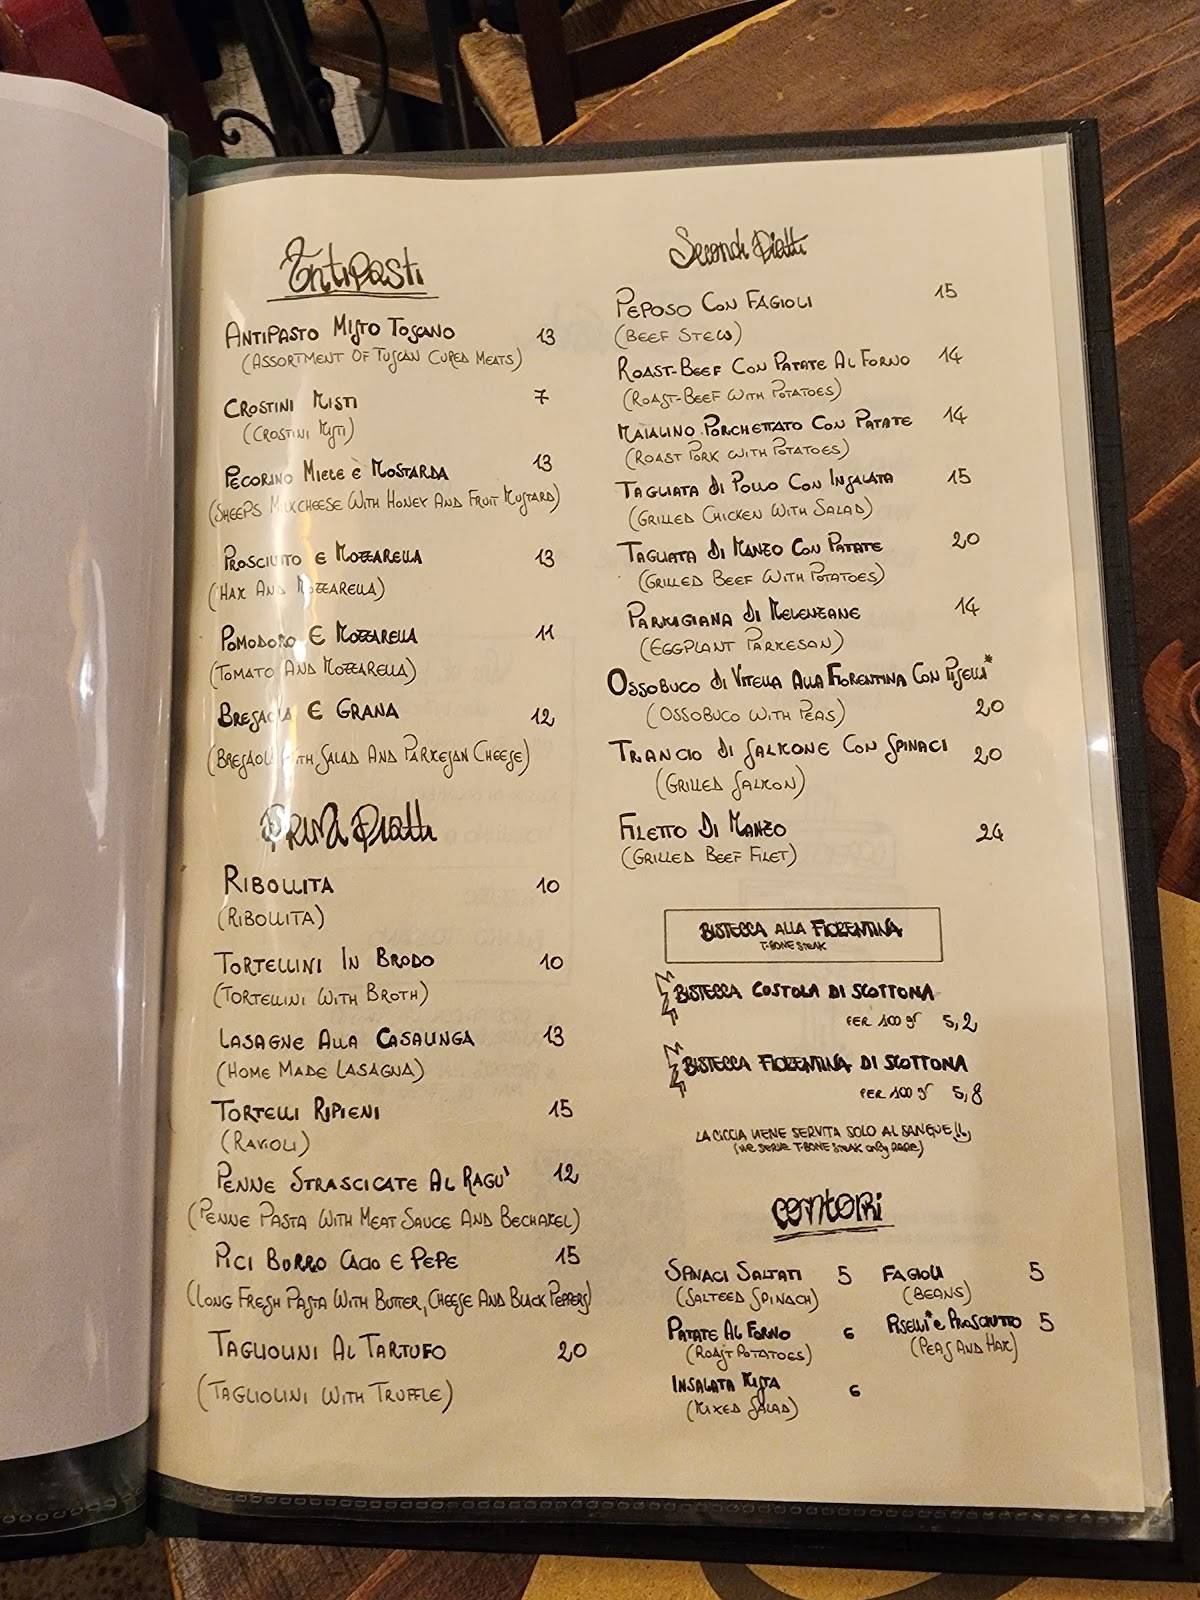 Antipasti
Antipasto Misto Toscano 13
(Assortment of Tuscan Cured Meats)
Crostini Misti 7
(Crostini Misti)
Pecorino Miele è Mostarda 13
(Sheeps Milkcheese With Honey And Fruit Mustard)
Prosciutto e Mozzarella 13
(Ham And Mozzarella)
Pomodoro E Mozzarella 11
(Tomato And Mozzarella)
Bresaola E Grana 12
(Bresaola With Salad And Parmesan Cheese)
Primi Piatti
Ribollita 10
(Ribollita)
Tortellini In Brodo 10
(Tortellini With Broth)
Lasagne Alla Casalinga 13
(Home Made Lasagna)
Tortelli Ripieni 15
(Ravioli)
Penne Strascicate Al Ragu' 12
(Penne Pasta With Meat Sauce And Bechamel)
Pici Burro Cacio e Pepe 15
(Long Fresh Pasta With Butter, Cheese And Black Peppers)
Tagliolini Al Tartufo 20
(Tagliolini With Truffle)
Secondi Piatti
Peposo Con Fagioli 15
(Beef Stew)
Roast-Beef Con Patate Al Forno 14
(Roast-Beef With Potatoes)
Maialino Porchettato Con Patate 14
(Roast Pork With Potatoes)
Tagliata di Pollo Con Insalata 15
(Grilled Chicken With Salad)
Tagliata di Manzo Con Patate 20
(Grilled Beef With Potatoes)
Parmigiana di Melenzane 14
(Eggplant Parmesan)
Ossobuco di Vitella Alla Fiorentina Con Piselli*
(Ossobuco With Peas) 20
Trancio di Salmone Con Spinaci 20
(Grilled Salmon)
Filetto Di Manzo 24
(Grilled Beef Filet)
Bistecca alla Fiorentina
T-Bone Steak
Bistecca Costola di Scottona
per 100 gr 5,2
Bistecca Fiorentina di Scottona
per 100 gr 5,8
La ciccia viene servita solo al sangue!!
(We serve T-Bone steak only rare)
Contorni
Spinaci Saltati 5
(Salteed Spinach)
Patate Al Forno 6
(Roast Potatoes)
Insalata Mista 6
(Mixed Salad)
Fagioli 5
(Beans)
Piselli* e Prosciutto 5
(Peas And Ham)